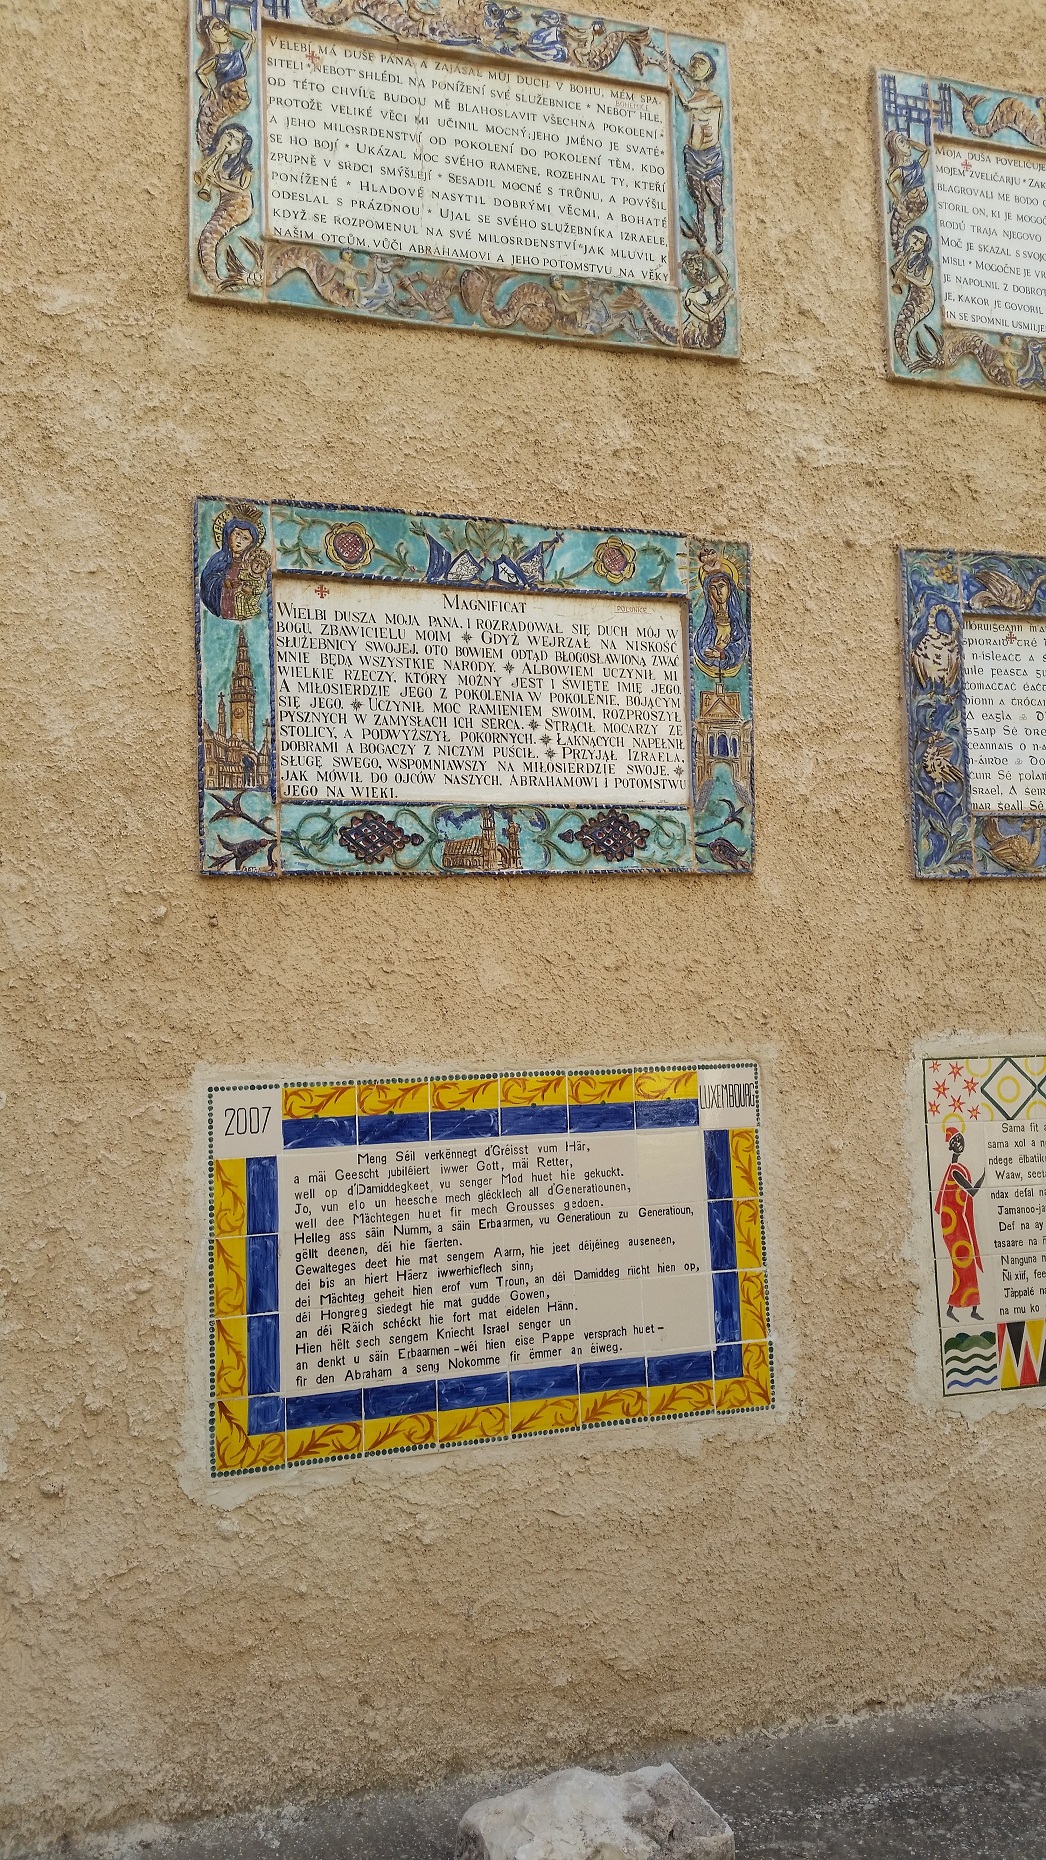 VELEBÍ MÁ DUŠE PÁNA A ZAJÁSAL MŮJ DUCH V BOHU, MÉM SPA-
SITELI * NEBOŤ SHLÉDL NA PONÍŽENÍ SVÉ SLUŽEBNICE * NEBOŤ HLE,
BOHEMICE
OD TÉTO CHVÍLE BUDOU MĚ BLAHOSLAVIT VŠECHNA POKOLENÍ *
PROTOŽE VELIKÉ VĚCI MI UČINIL MOCNÝ; JEHO JMÉNO JE SVATÉ *
A JEHO MILOSRDENSTVÍ OD POKOLENÍ DO POKOLENÍ TĚM, KDO
SE HO BOJÍ * UKÁZAL MOC SVÉHO RAMENE, ROZEHNAL TY, KTEŘÍ
ZPUPNĚ V SRDCI SMÝŠLEJÍ * SESADIL MOCNÉ S TRŮNU, A POVÝŠIL
PONÍŽENÉ * HLADOVÉ NASYTIL DOBRÝMI VĚCMI, A BOHATÉ
ODESLAL S PRÁZDNOU * UJAL SE SVÉHO SLUŽEBNÍKA IZRAELE,
KDYŽ SE ROZPOMENUL NA SVÉ MILOSRDENSTVÍ * JAK MLUVIL K
NAŠIM OTCŮM, VŮČI ABRAHAMOVI A JEHO POTOMSTVU NA VĚKY
MOJA DUŠA POVELIČUJE
MOJEM ZVELIČARJU * ZAK
BLAGROVALI ME BODO O
STORIL ON, KI JE MOGOČ
RODU TRAJA NJEGOVO
MOČ JE SKAZAL S SVOJO
MISLI * MOGOČNE JE VR
JE NAPOLNIL Z DOBROT
JE, KAKOR JE GOVORIL
IN SE SPOMNIL USMILJE
MAGNIFICAT
POLONICE
WIELBI DUSZA MOJA PANA, I ROZRADOWAŁ SIĘ DUCH MÓJ W
BOGU, ZBAWICIELU MOIM * GDYŻ WEJRZAŁ NA NISKOŚĆ
SŁUŻEBNICY SWOJEJ. OTO BOWIEM ODTĄD BŁOGOSŁAWIONĄ ZWAĆ
MNIE BĘDĄ WSZYSTKIE NARODY. * ALBOWIEM UCZYNIŁ MI
WIELKIE RZECZY, KTÓRY MOŻNY JEST I ŚWIĘTE IMIĘ JEGO.
A MIŁOSIERDZIE JEGO Z POKOLENIA W POKOLENIE, BOJĄCYM
SIĘ JEGO. * UCZYNIŁ MOC RAMIENIEM SWOIM, ROZPROSZYŁ
PYSZNYCH W ZAMYSŁACH ICH SERCA. * STRĄCIŁ MOCARZY ZE
STOLICY, A PODWYŻSZYŁ POKORNYCH. * ŁAKNĄCYCH NAPEŁNIŁ
DOBRAMI A BOGACZY Z NICZYM PUŚCIŁ. * PRZYJĄŁ IZRAELA,
SŁUGĘ SWEGO, WSPOMNIAWSZY NA MIŁOSIERDZIE SWOJE. *
JAK MÓWIŁ DO OJCÓW NASZYCH, ABRAHAMOWI I POTOMSTWU
JEGO NA WIEKI.
2007
LUXEMBOURG
Meng Séil verkënnegt d'Gréisst vum Här,
a mäi Geescht jubiléiert iwwer Gott, mäi Retter,
well op d'Damiddegkeet vu senger Mod huet hie gekuckt.
Jo, vun elo un heesche mech glécklech all d'Generatiounen,
well dee Mächtegen huet fir mech Grousses gedoen.
Helleg ass säin Numm, a säin Erbaarmen, vu Generatioun zu Generatioun,
gëllt deenen, déi hie fäerten.
Gewalteges deet hie mat sengem Aarm, hie jeet déijéineg auseneen,
dei bis an hiert Häerz iwwerhieflech sinn;
dei Mächteg geheit hien erof vum Troun, an déi Damiddeg riicht hien op,
déi Hongreg siedegt hie mat gudde Gowen,
an déi Räich schéckt hie fort mat eidelen Hänn.
Hien hëlt sech sengem Kniecht Israel senger un
an denkt u säin Erbaarmen - wéi hien eise Pappe versprach huet -
fir den Abraham a seng Nokomme fir ëmmer an éiweg.
Sama fit a
sama xol a n
ndege ëlbatik
Waaw, seet
ndax defal na
Jamanoo-ja
Def na ay
tasaare na ñ
Nanguna n
Ñi xiif, fee
Jàppalé na
na mu ko